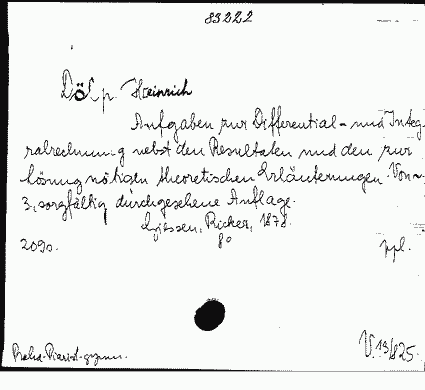 83222
Dölp Heinrich
Aufgaben zur Differential- und Integ-
ralrechnung nebst den Resultaten und den zur
Lösung nötigen theoretischen Erläuterungen. Von
3, sorgfältig durchgesehene Auflage.
Giessen, Ricker, 1878.
8°
209s. ppl.
Praha-Piarist-gymn. V.13/825.